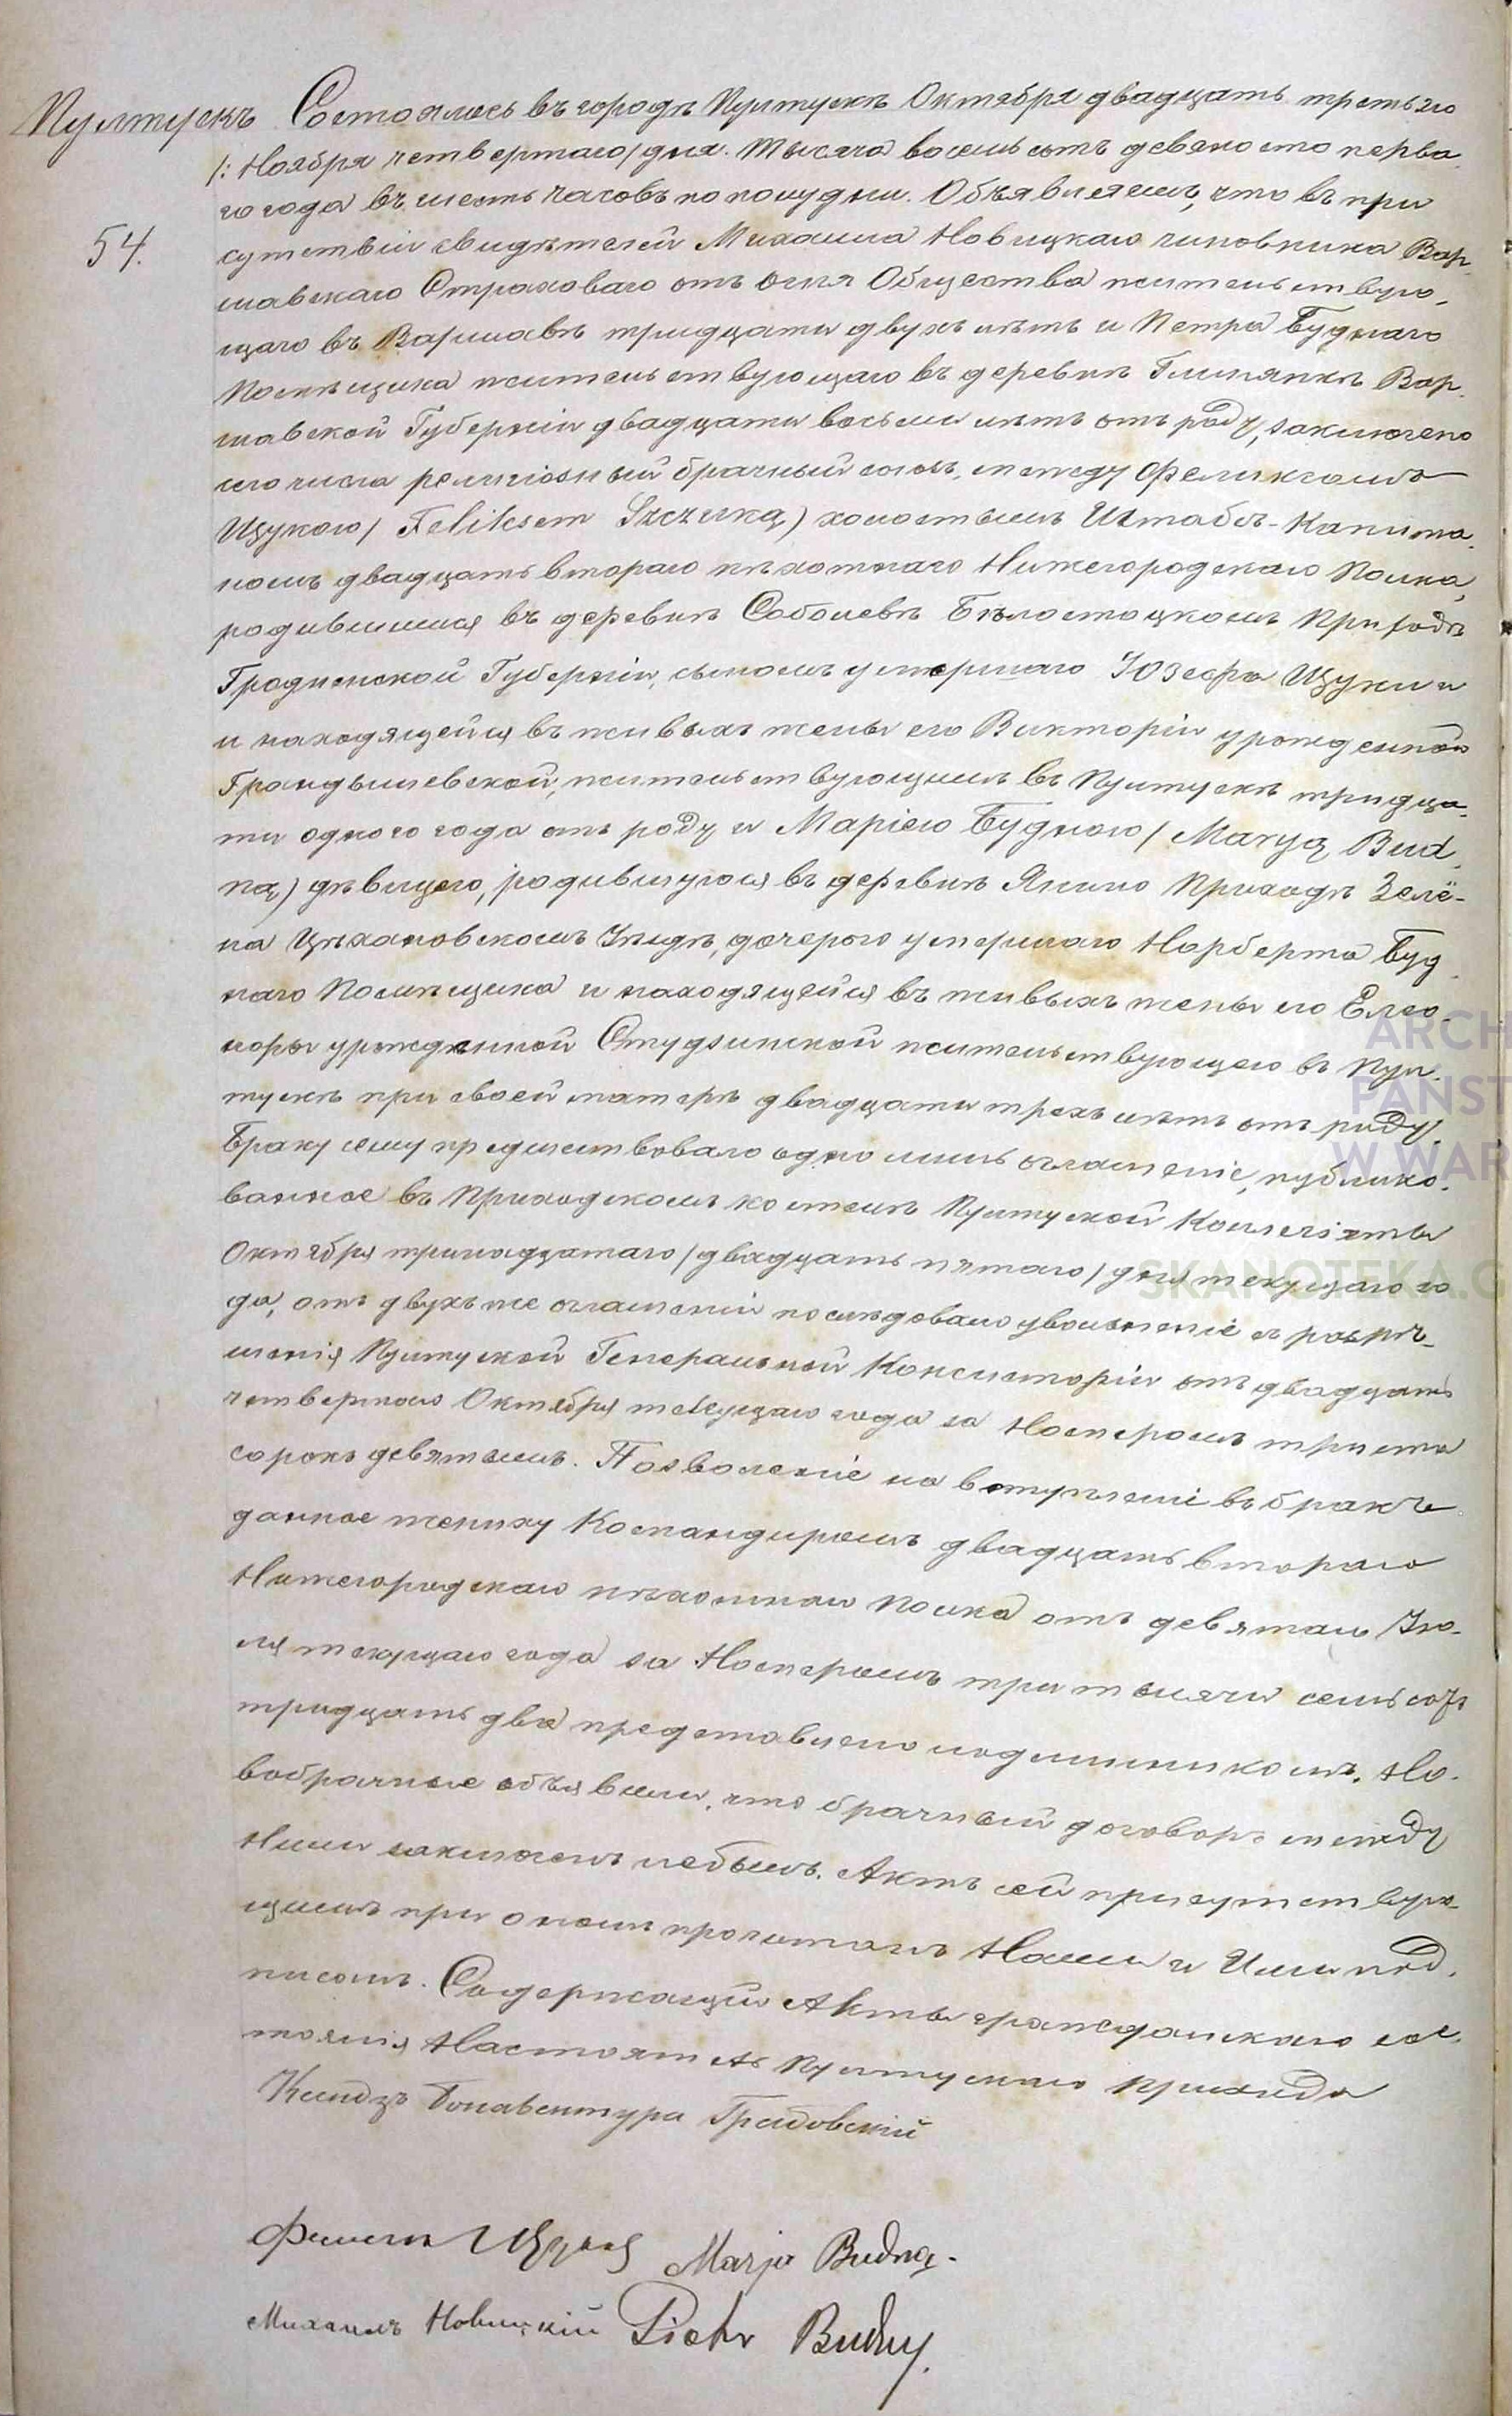 Пултускъ
54.
Состоялось въ городѣ Пултускѣ Октября двадцать третьяго
/: Ноября четвертаго/ дня. Тысяча восемьсотъ девяносто перва-
го года въ шесть часовъ по полудни. Объявляемъ, что въ при
сутствіи свидѣтелей Михаила Новицкаго чиновника Вар-
шавскаго Страховаго отъ огня Общества жительствую-
щаго въ Варшавѣ тридцати двухъ лѣтъ и Петра Буднаго
Помѣщика жительствующаго въ деревнѣ Глинянкѣ Вар-
шавской Губерніи двадцати восьми лѣтъ отъ роду, заключенъ
сего числа религіозный брачный союзъ, между Феликсомъ
Щукою / Feliksem Szczuką) холостымъ Штабсъ-Капита-
номъ двадцать втораго пѣхотнаго Нижегородскаго Полка,
родившимся въ деревнѣ Соболевѣ Бѣлостоцкомъ Приходѣ
Гродненской Губерніи, сыномъ умершаго Юзефа Щуки и
и находящейся въ живыхъ жены его Викторіи урожденной
жительствующимъ въ Пултускѣ тридца-
ти одного года отъ роду и Маріею Будною / Maryą Bud-
ną) дѣвицею, родившуюся въ деревнѣ Янино Приходѣ Зелё-
на Цѣхановскомъ Уѣздѣ, дочерью умершаго Норберта Буд-
наго Помѣщика и находящейся въ живыхъ жены его Елео-
норы урожденной Студзинской жительствующею въ Пул-
тускѣ при своей матерѣ двадцати трехъ лѣтъ отъ роду.
Браку сему предшествовало одно лишь оглашеніе, публико-
ванное въ Приходскомъ костелѣ Пултуской Коллегіяты
Октября тринадцатаго / двадцать пятаго / дня текущаго го
да, отъ двухъ же оглашеній последовало увольненіе съ разрѣ-
шенія Пултуской Генеральной Консисторіи отъ двадцать
четвертаго Октября текущаго года за Номеромъ триста
сорокъ девятымъ. Позволеніе на вступленіе въ бракъ
данное жениху Командиромъ двадцать втораго
Нижегородскаго пѣхотнаго Полка отъ девятаго Ію-
ля текущаго года за Номеромъ три тысячи семьсотъ
тридцать два представлено подлинникомъ. Но-
вобрачные объявили, что брачный договоръ между
Ними заключенъ небылъ. Актъ сей присутствую-
щимъ при ономъ прочитанъ Нами и Ими под-
писанъ. Содержащій Акты гражданскаго сос-
тоянія Настоятель Пултускаго Прихода
Ксендзъ Бонавентура Градовскій
Феликсъ Щука Marja Budna.
Михаилъ Новицкій Piotr Budny.
ARCH
PAŃST
W WAR
SKANOTEKA.G